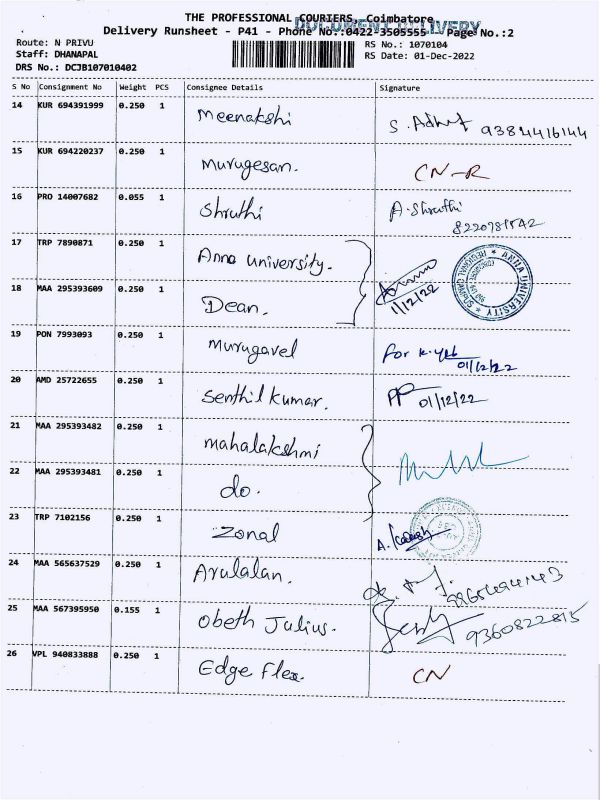 THE PROFESSIONAL COURIERS, Coimbatore
DOCUMENT DELIVERY
Delivery Runsheet - P41 - Phone No.:0422-3505555 Page No.:2
Route: N PRIVU
RS No.: 1070104
Staff: DHANAPAL
RS Date: 01-Dec-2022
DRS No.: DCJB107010402
S No Consignment No Weight PCS Consignee Details Signature
14 KUR 694391999 0.250 1 Meenakshi 9384416144
15 KUR 694220237 0.250 1 Murugesan. CN-R
16 PRO 14007682 0.055 1 Shruthi A. Shruthi
17 TRP 7890871 0.250 1 Anna University.
ANNA UNIVERSITY
18 MAA 295393609 0.250 1 Dean. 1/12/22
19 PON 7993093 0.250 1 Murugavel for 01/12/22
20 AMD 25722655 0.250 1 Senthil kumar. 01/12/22
21 MAA 295393482 0.250 1 Mahalakshmi
22 MAA 295393481 0.250 1 do.
23 TRP 7102156 0.250 1 Zonal
24 MAA 565637529 0.250 1 Arulalan.
25 MAA 567395950 0.155 1 Obeth Julius. 9360822815
26 VPL 940833888 0.250 1 Edge Flex. CN